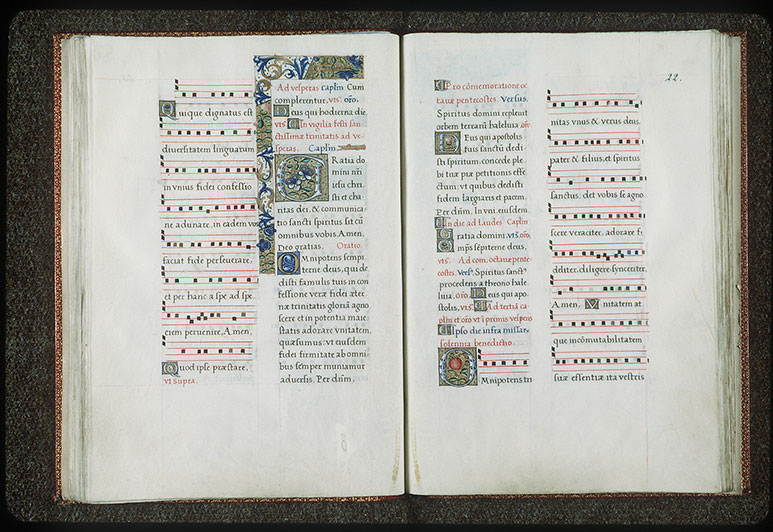 Qui que dignatus est
diuersitatem linguarum
in vnius fidei confessio
ne adunare, in eadem vos
faciat fide perseuerare,
et per hanc a spe ad spe,
ciem peruenire, Amen,
Quod ipse præstare,
vt supra,
Ad vesperas caplm Cum
complerentur, vts. oro.
Deus qui hodierna die
vts. In vigilia festi san
ctissimæ trinitatis ad ve
speras, Caplm
GRatia do
mini nri
iesu chri
sti et cha
ritas dei, & communica
tio sancti spiritus sit cū
omnibus vobis, Amen.
Deo gratias. Oratio.
OMnipotens sempi
terne deus, qui de
disti famulis tuis in con
fessione veræ fidei æter
næ trinitatis gloriā agno
scere et in potentia maie
statis adorare vnitatem,
quæsumus: vt eiusdem
fidei firmitate ab omni
bus semper muniamur
aduersis. Per dnm.
22.
Pro cōmemoratione oc
tauæ pentecostes, Versus,
Spiritus domini repleuit
orbem terrarū haleluia, oro
DEus qui apostolis
tuis sanctū dedi
sti spiritum, concede ple
bi tuæ piæ petitionis effe
ctum: vt quibus dedisti
fidem largiaris et pacem.
Per dnm. In vni. eiusdem
In die ad Laudes Caplm
Gratia domini, vts. oro,
Omnps sēpiterne deus,
vts. Ad com. octauæ pente
costes. Vers. Spiritus sanct9
procedens a throno hale
luia, oro. Deus qui apo
stolis, vts. Ad tertiā ca
plm et oro vt i primis vesperis
Ipso die infra missar.
solennia benedictio.
OMnipotens tri
nitas vnus & verus deus,
pater & filius, et spiritus
sanctus: det vobis se agno
scere veraciter, adorare fi
deliter, diligere syncenter,
Amen, Vnitatem at
que incōmutabilitatem
suæ essentiæ ita vestris